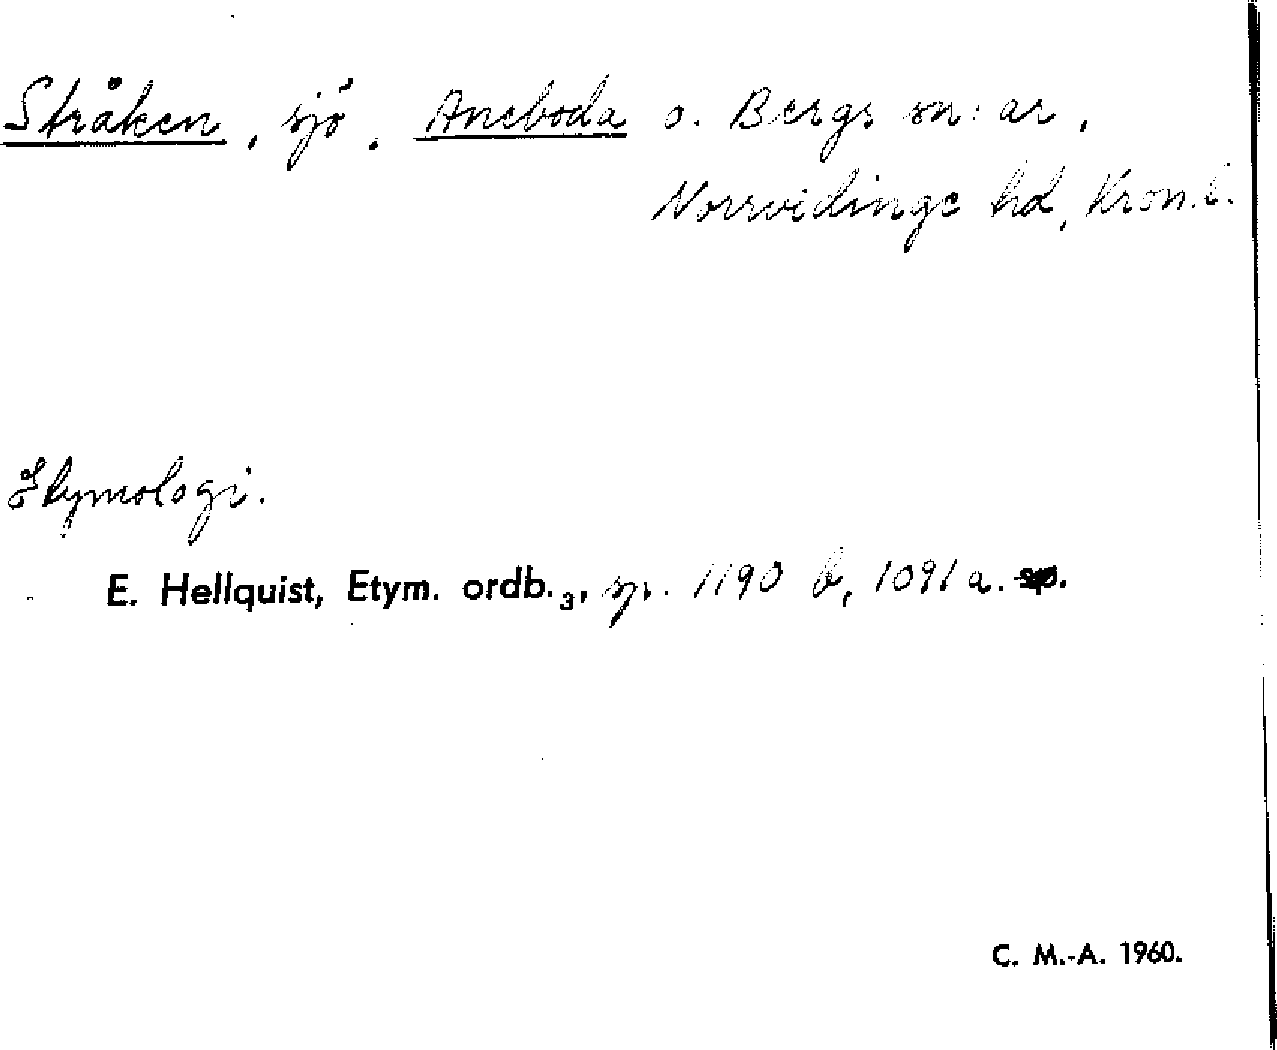 Stråken, sjö, Aneboda o. Bergs sn:ar,
Norrvidinge hd, Kron. l.
Etymologi.
E. Hellquist, Etym. ordb.3, sp. 1190 b, 1091 a. sp.
C. M.-A. 1960.